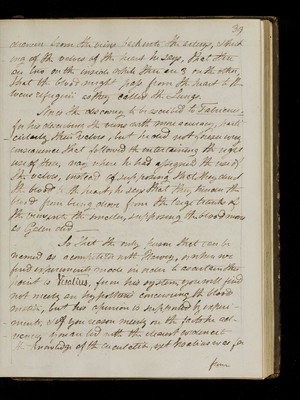 39
discover from the veins, between the artery, which
of the valves of the heart he says, that there
are two on the inside while there are 3 on the other,
that the blood might pass from the heart to
locus refrigerii as they called the Lungs.
Since the discovery to be ascribed to Fabricius
for his describing the veins with more accuracy, parti
cularly their valves, but he did not foresee any
consequence that followed the entertaining the
use of them, nay when he had assigned the use of
the valves, instead of supposing that they send
the blood to the heart, he says that they hinder the
blood from being drove from the large trunks of
the veins into the smaller, supposing the blood moved
as Galen did —
So that the only person that can be
named as competitor with Harvey, & when we
find experiments made in order to ascertain this
point is Vesalius, from his system you will find
not merely an hypothesis concerning the blood's
motion, but his opinion is supported by experi-
ments, & if you reason merely on the facts he ad-
vances, you are led with the clearest evidence
knowledge of the circulation, yet Vesalius was so far
from